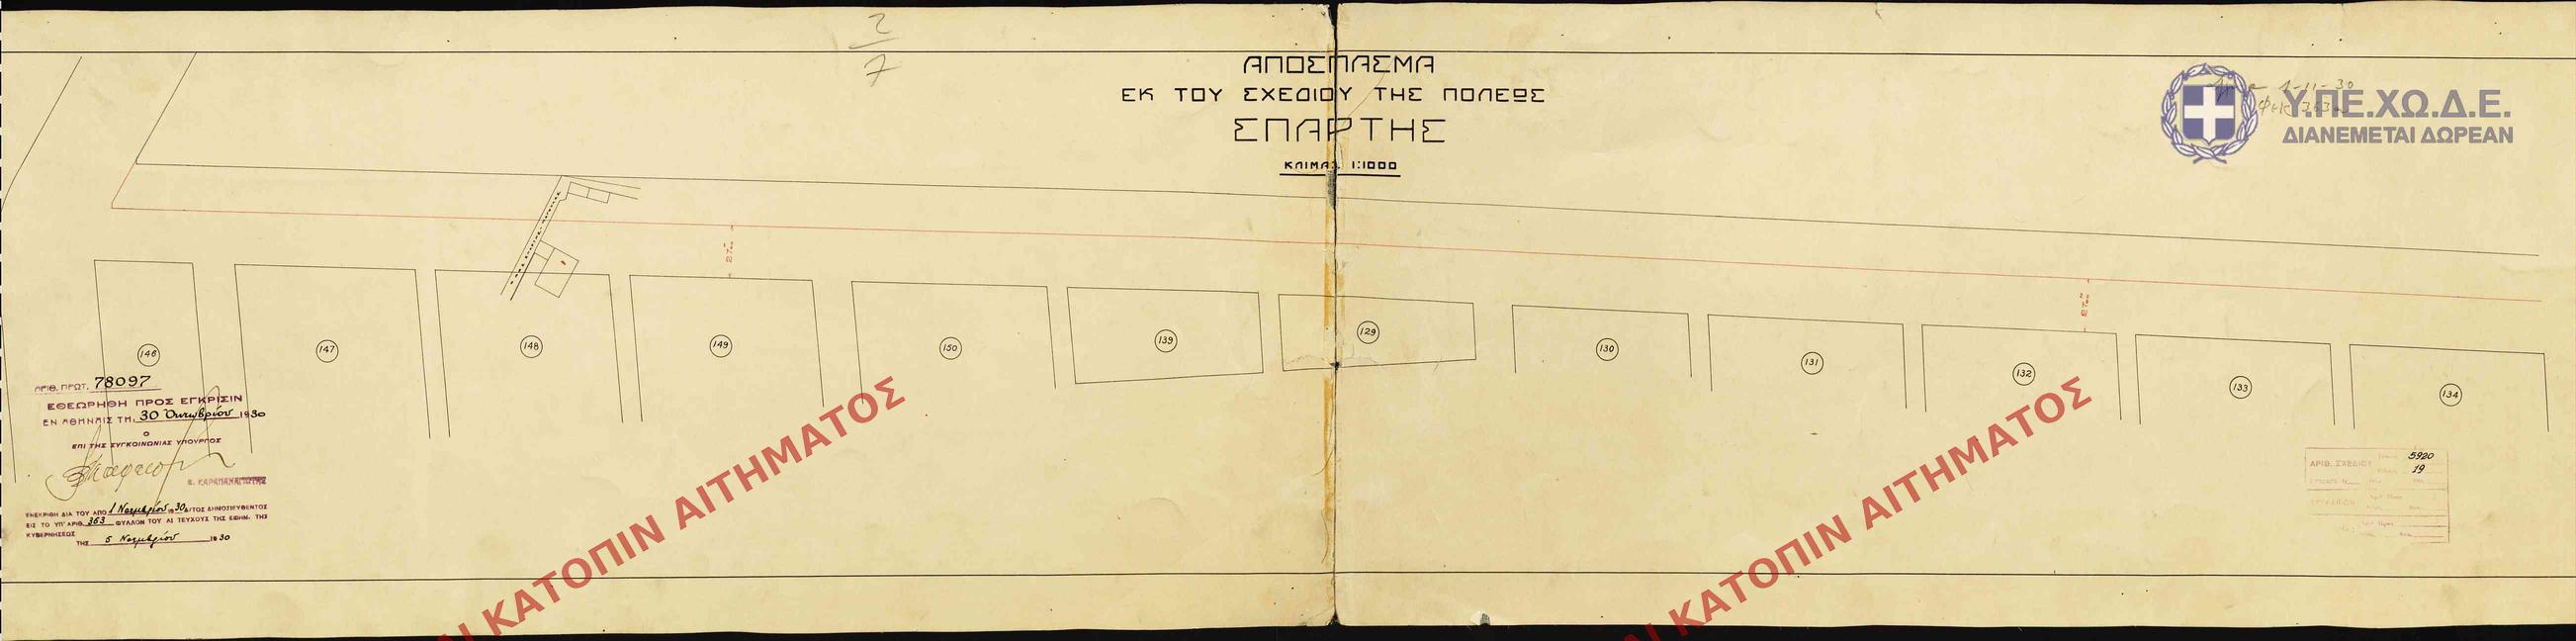 2
7
ΑΠΟΣΠΑΣΜΑ
ΕΚ ΤΟΥ ΣΧΕΔΙΟΥ ΤΗΣ ΠΟΛΕΩΣ
ΣΠΑΡΤΗΣ
ΚΛΙΜΑΞ 1:1000
1-11-30
Υ.ΠΕ.ΧΩ.Δ.Ε.
ΔΙΑΝΕΜΕΤΑΙ ΔΩΡΕΑΝ
146
147
148
149
150
139
129
130
131
132
133
134
ΑΡΙΘ. ΠΡΩΤ. 78097
ΕΘΕΩΡΗΘΗ ΠΡΟΣ ΕΓΚΡΙΣΙΝ
ΕΝ ΑΘΗΝΑΙΣ ΤΗ 30 Οκτωβρίου 1930
Ο
ΕΠΙ ΤΗΣ ΣΥΓΚΟΙΝΩΝΙΑΣ ΥΠΟΥΡΓΟΣ
ΕΝΕΚΡΙΘΗ ΔΙΑ ΤΟΥ ΑΠΟ 1 Νοεμβρίου 1930 Δ/ΤΟΣ ΔΗΜΟΣΙΕΥΘΕΝΤΟΣ
ΕΙΣ ΤΟ ΥΠ' ΑΡΙΘ. 363 ΦΥΛΛΟΝ ΤΟΥ Α! ΤΕΥΧΟΥΣ ΤΗΣ ΕΦΗΜ. ΤΗΣ
ΚΥΒΕΡΝΗΣΕΩΣ
ΤΗΣ 5 Νοεμβρίου 1930
ΑΡΙΘ. ΣΧΕΔΙΟΥ 5920
19
ΑΙ ΚΑΤΟΠΙΝ ΑΙΤΗΜΑΤΟΣ
ΑΙ ΚΑΤΟΠΙΝ ΑΙΤΗΜΑΤΟΣ